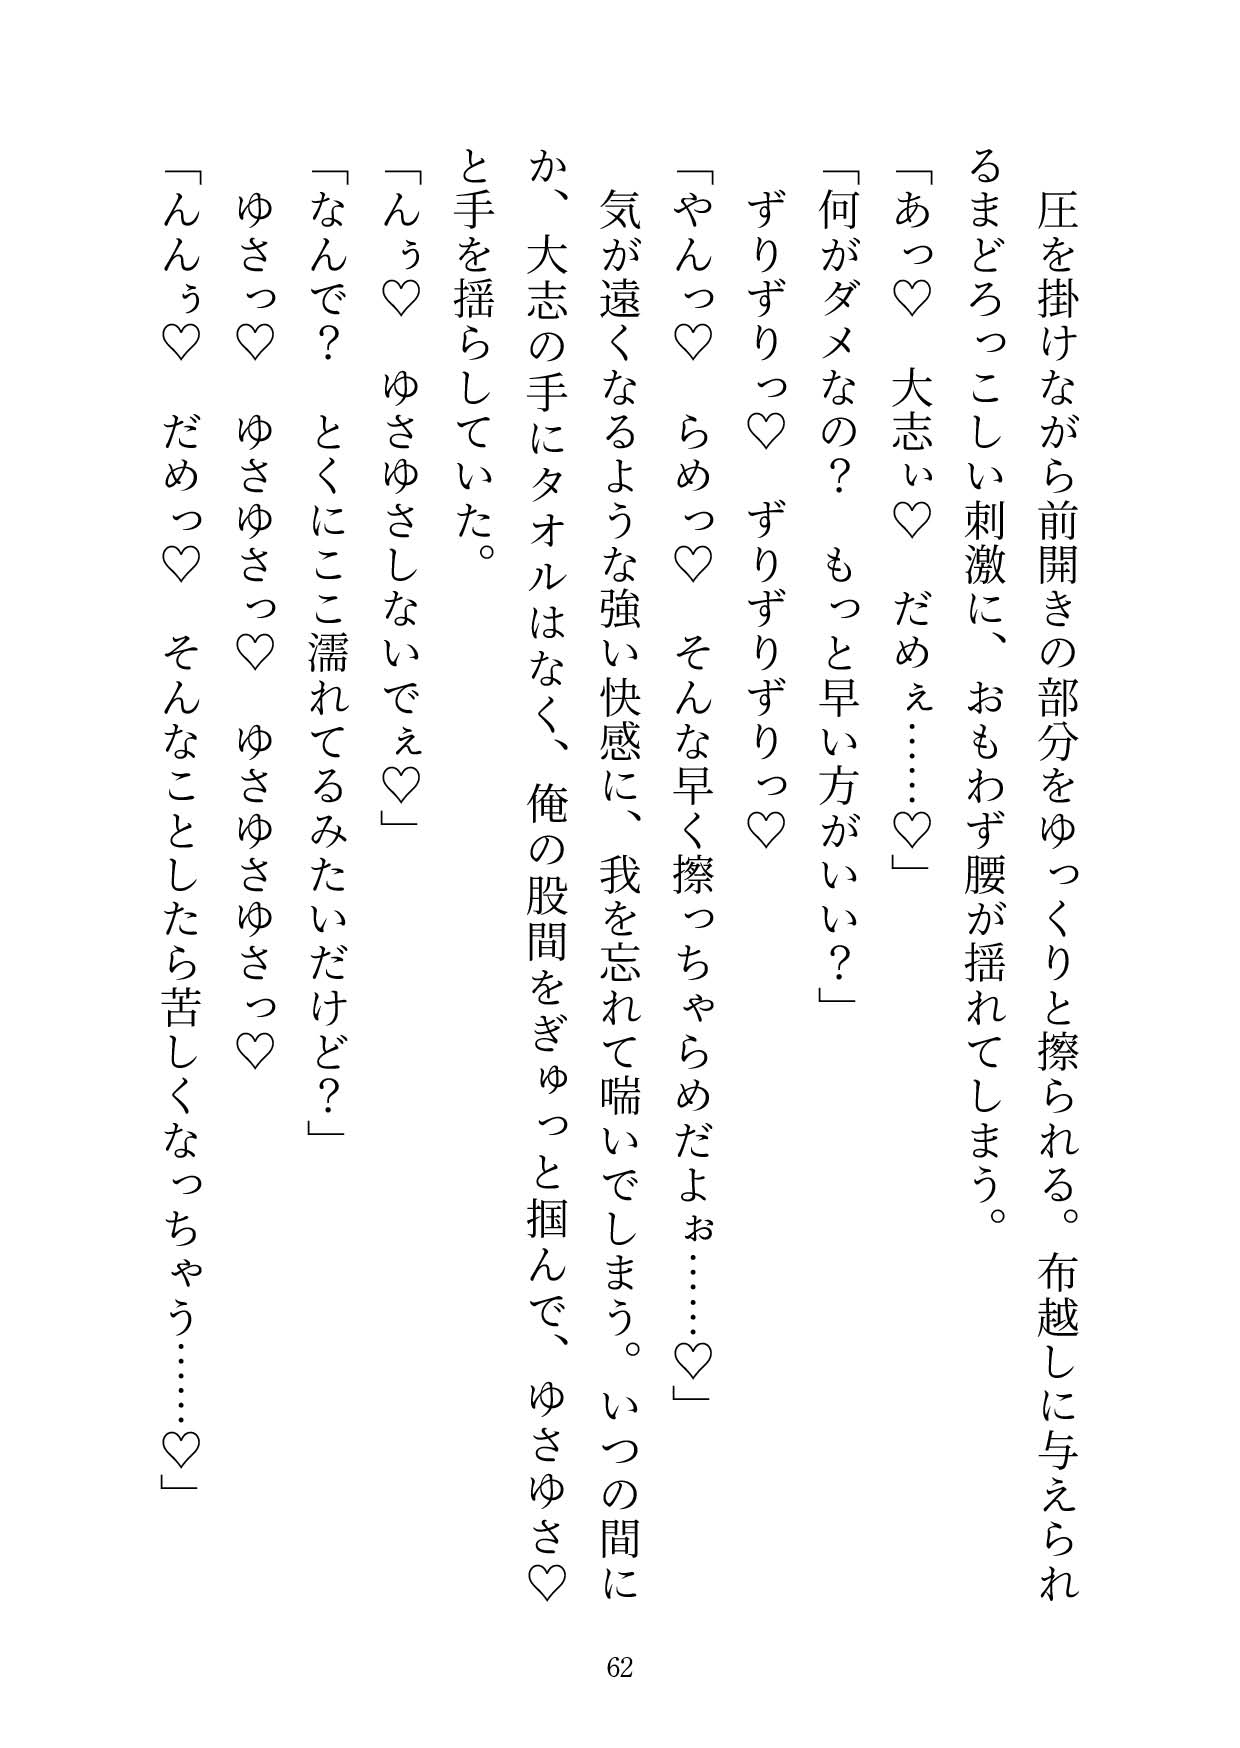 圧を掛けながら前開きの部分をゆっくりと擦られる。布越しに与えられ
るまどろっこしい刺激に、おもわず腰が揺れてしまう。
「あっ♡　大志ぃ♡　だめぇ……♡」
「何がダメなの？　もっと早い方がいい？」
　ずりずりっ♡　ずりずりずりっ♡
「やんっ♡　らめっ♡　そんな早く擦っちゃらめだよぉ……♡」
　気が遠くなるような強い快感に、我を忘れて喘いでしまう。いつの間に
か、大志の手にタオルはなく、俺の股間をぎゅっと掴んで、ゆさゆさ♡
と手を揺らしていた。
「んぅ♡　ゆさゆさしないでぇ♡」
「なんで？　とくにここ濡れてるみたいだけど？」
　ゆさっ♡　ゆさゆさっ♡　ゆさゆさゆさっ♡
「んんぅ♡　だめっ♡　そんなことしたら苦しくなっちゃう……♡」
62